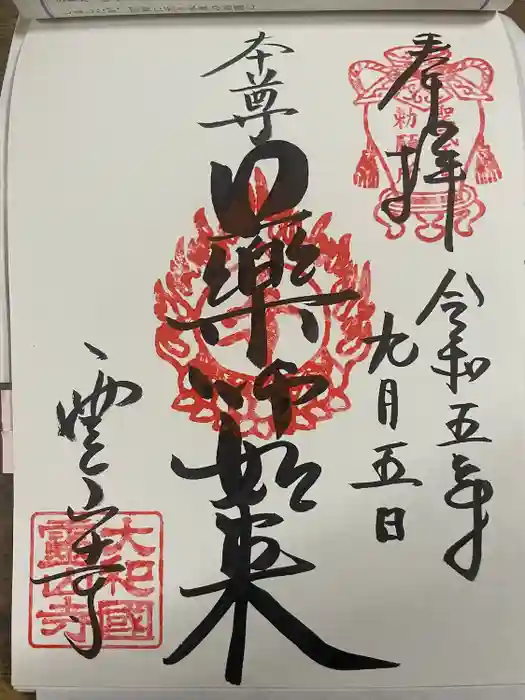 奉拝
聖武
勅願所
令和五年
九月五日
本尊
藥師如来
霊山寺
大和國
靈山寺